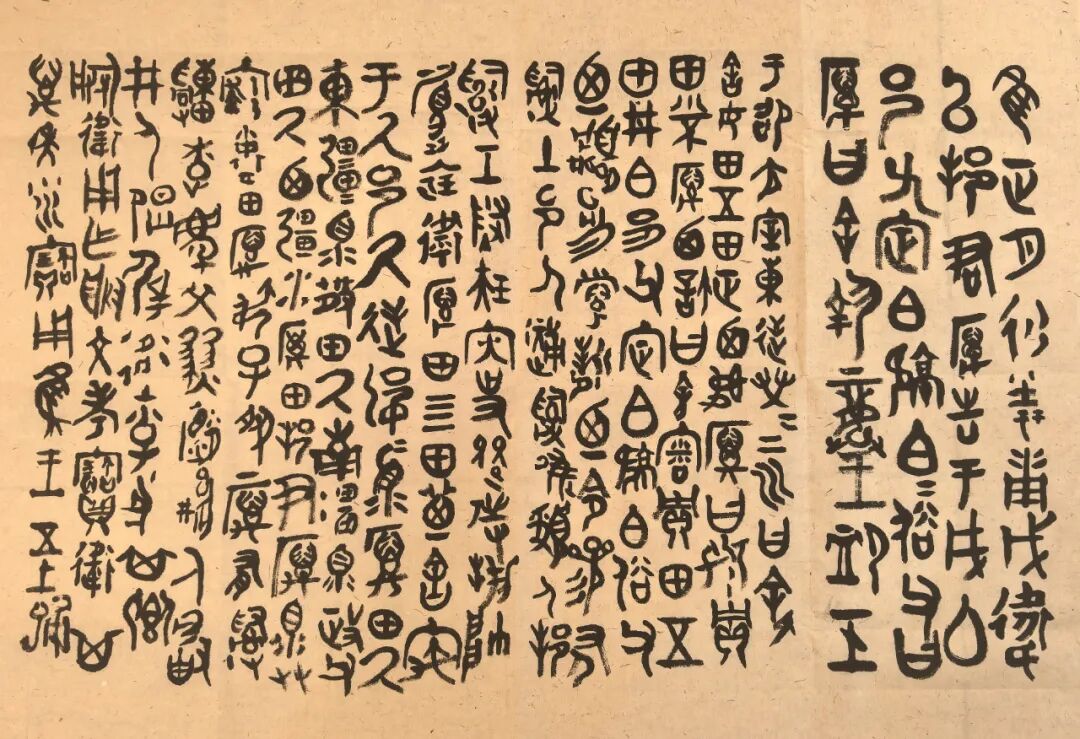 隹正月初吉庚戌衛
以邦君厲告于井白
邑父定白𤞷白=俗父曰
厲曰余執龏王卹工
于卲大室東逆㷉二川曰余
舍女田五田正廼訊厲曰女賈
田不厲廼許曰余審賈田五
田井白白邑父定白𤞷白俗父
廼顜吏厲誓廼令參有
𤔲土邑人趞𤔲馬頞人邦
𤔲工矩內史友寺芻帥
履裘衛厲田四田廼舍寓
于厥邑厥逆疆眔厲田厥
東疆眔散田厥南疆眔散田眔政父
田厥西疆眔厲田邦君厲眔付
裘衛田厲叔子夙厲有𤔲
季慶癸豳表荊人敢
井人偈屖衛小子其鄉
衛用乍朕文考寶鼎衛其
萬年永寶用隹王五祀